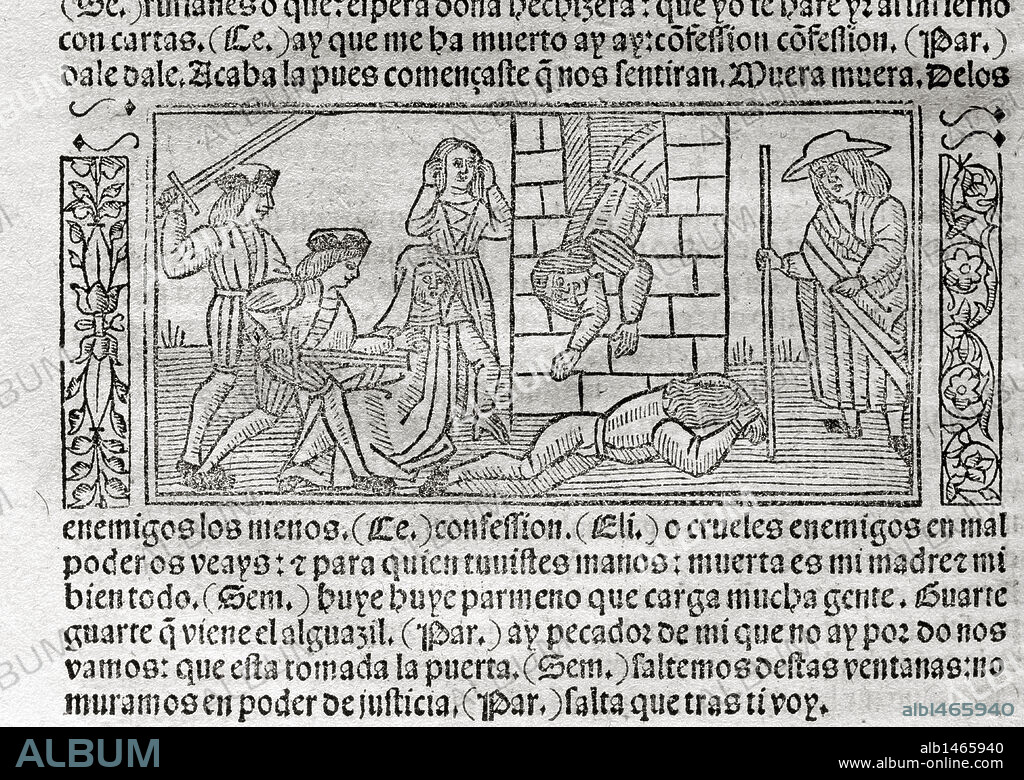 (Se.) rufianes o que: espera doña hechizera: que yo te hare yr al infierno
con cartas. (Ce.) ay que me ha muerto ay ay: cõfession cõfession. (Par.)
dale dale. Acaba la pues començaste q̃ nos sentiran. Muera muera. Delos
enemigos los menos. (Ce.) confession. (Eli.) o crueles enemigos en mal
poder os veays: ⁊ para quien tuuistes manos: muerta es mi madre ⁊ mi
bien todo. (Sem.) huye huye parmeno que carga mucha gente. Guarte
guarte q̃ viene el alguazil. (Par.) ay pecador de mi que no ay por do nos
vamos: que esta tomada la puerta. (Sem.) saltemos destas ventanas: no
muramos en poder de justicia. (Par.) salta que tras ti voy.
albl465940
ALBUM
alb1465940
www.album-online.com